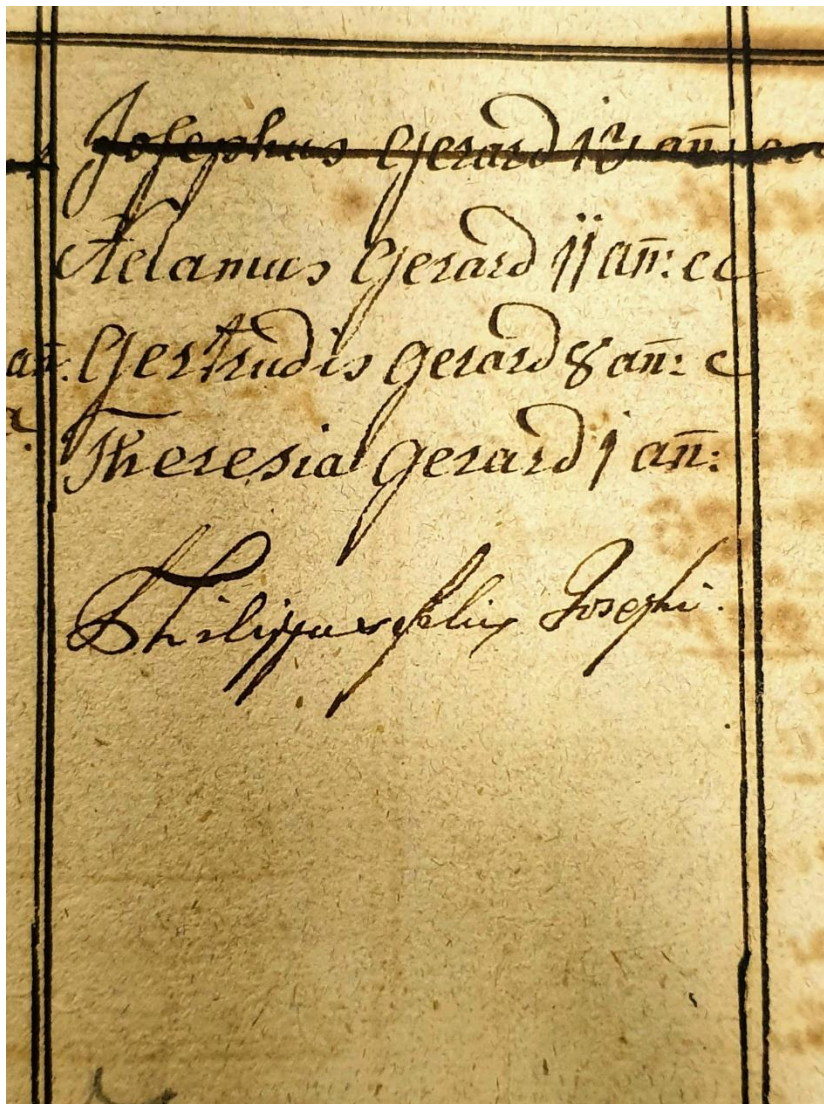 Josephus Gerard 13 añ: cc
Adamus Gerard 11 añ: cc
añ: Gertrudis Gerard 8 añ: c
a. Theresia Gerard 1 añ:
Philippus felix Josephi.